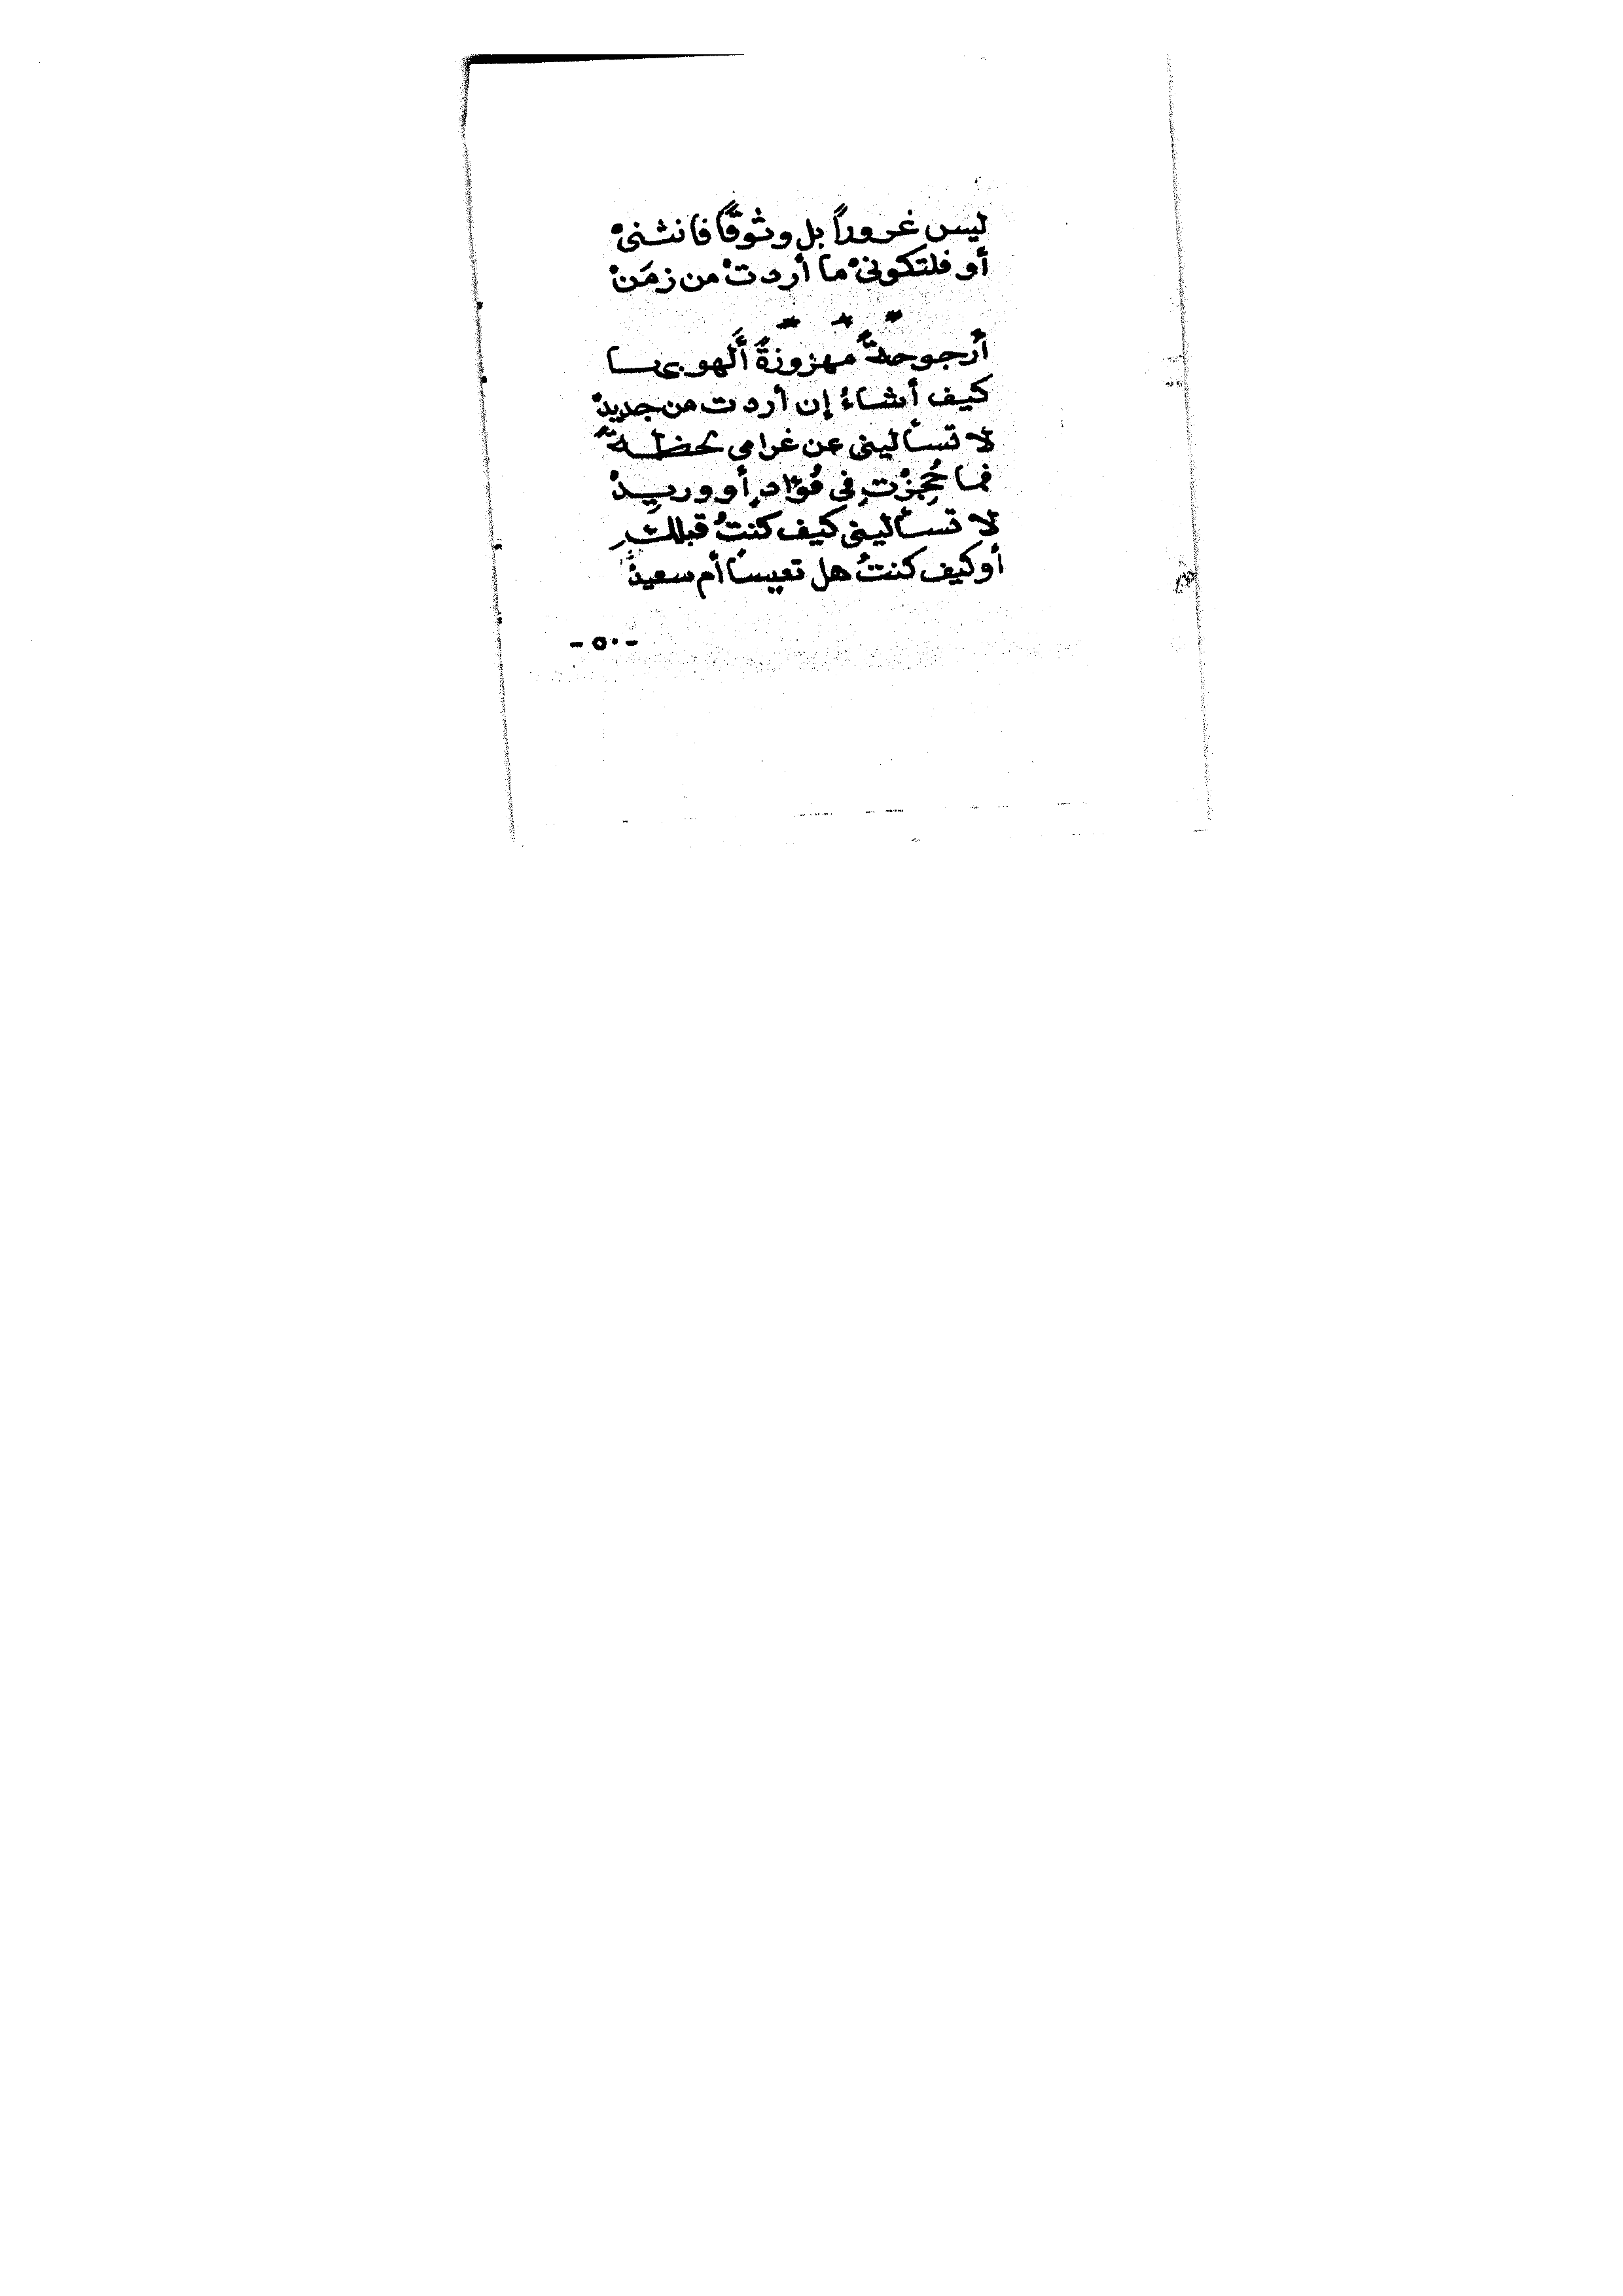 ليس غروراً بل وثوقًا فانثنىْ
أو فلتكونىْ ما أردتْ من زمَنْ
* * *
أُرجوحةٌ مهزوزةٌ أَلهو بهــا
كيف أشاءُ إن أردت من جديدْ
لا تسأليني عن غرامى لحظــةً
فما حُجِزْتِ فى فُؤادٍ أو وريدْ
لا تسأليني كيف كنتُ قبلكِ
أو كيف كنتُ هل تعيسًا أم سعيدْ
- ٥٠ -